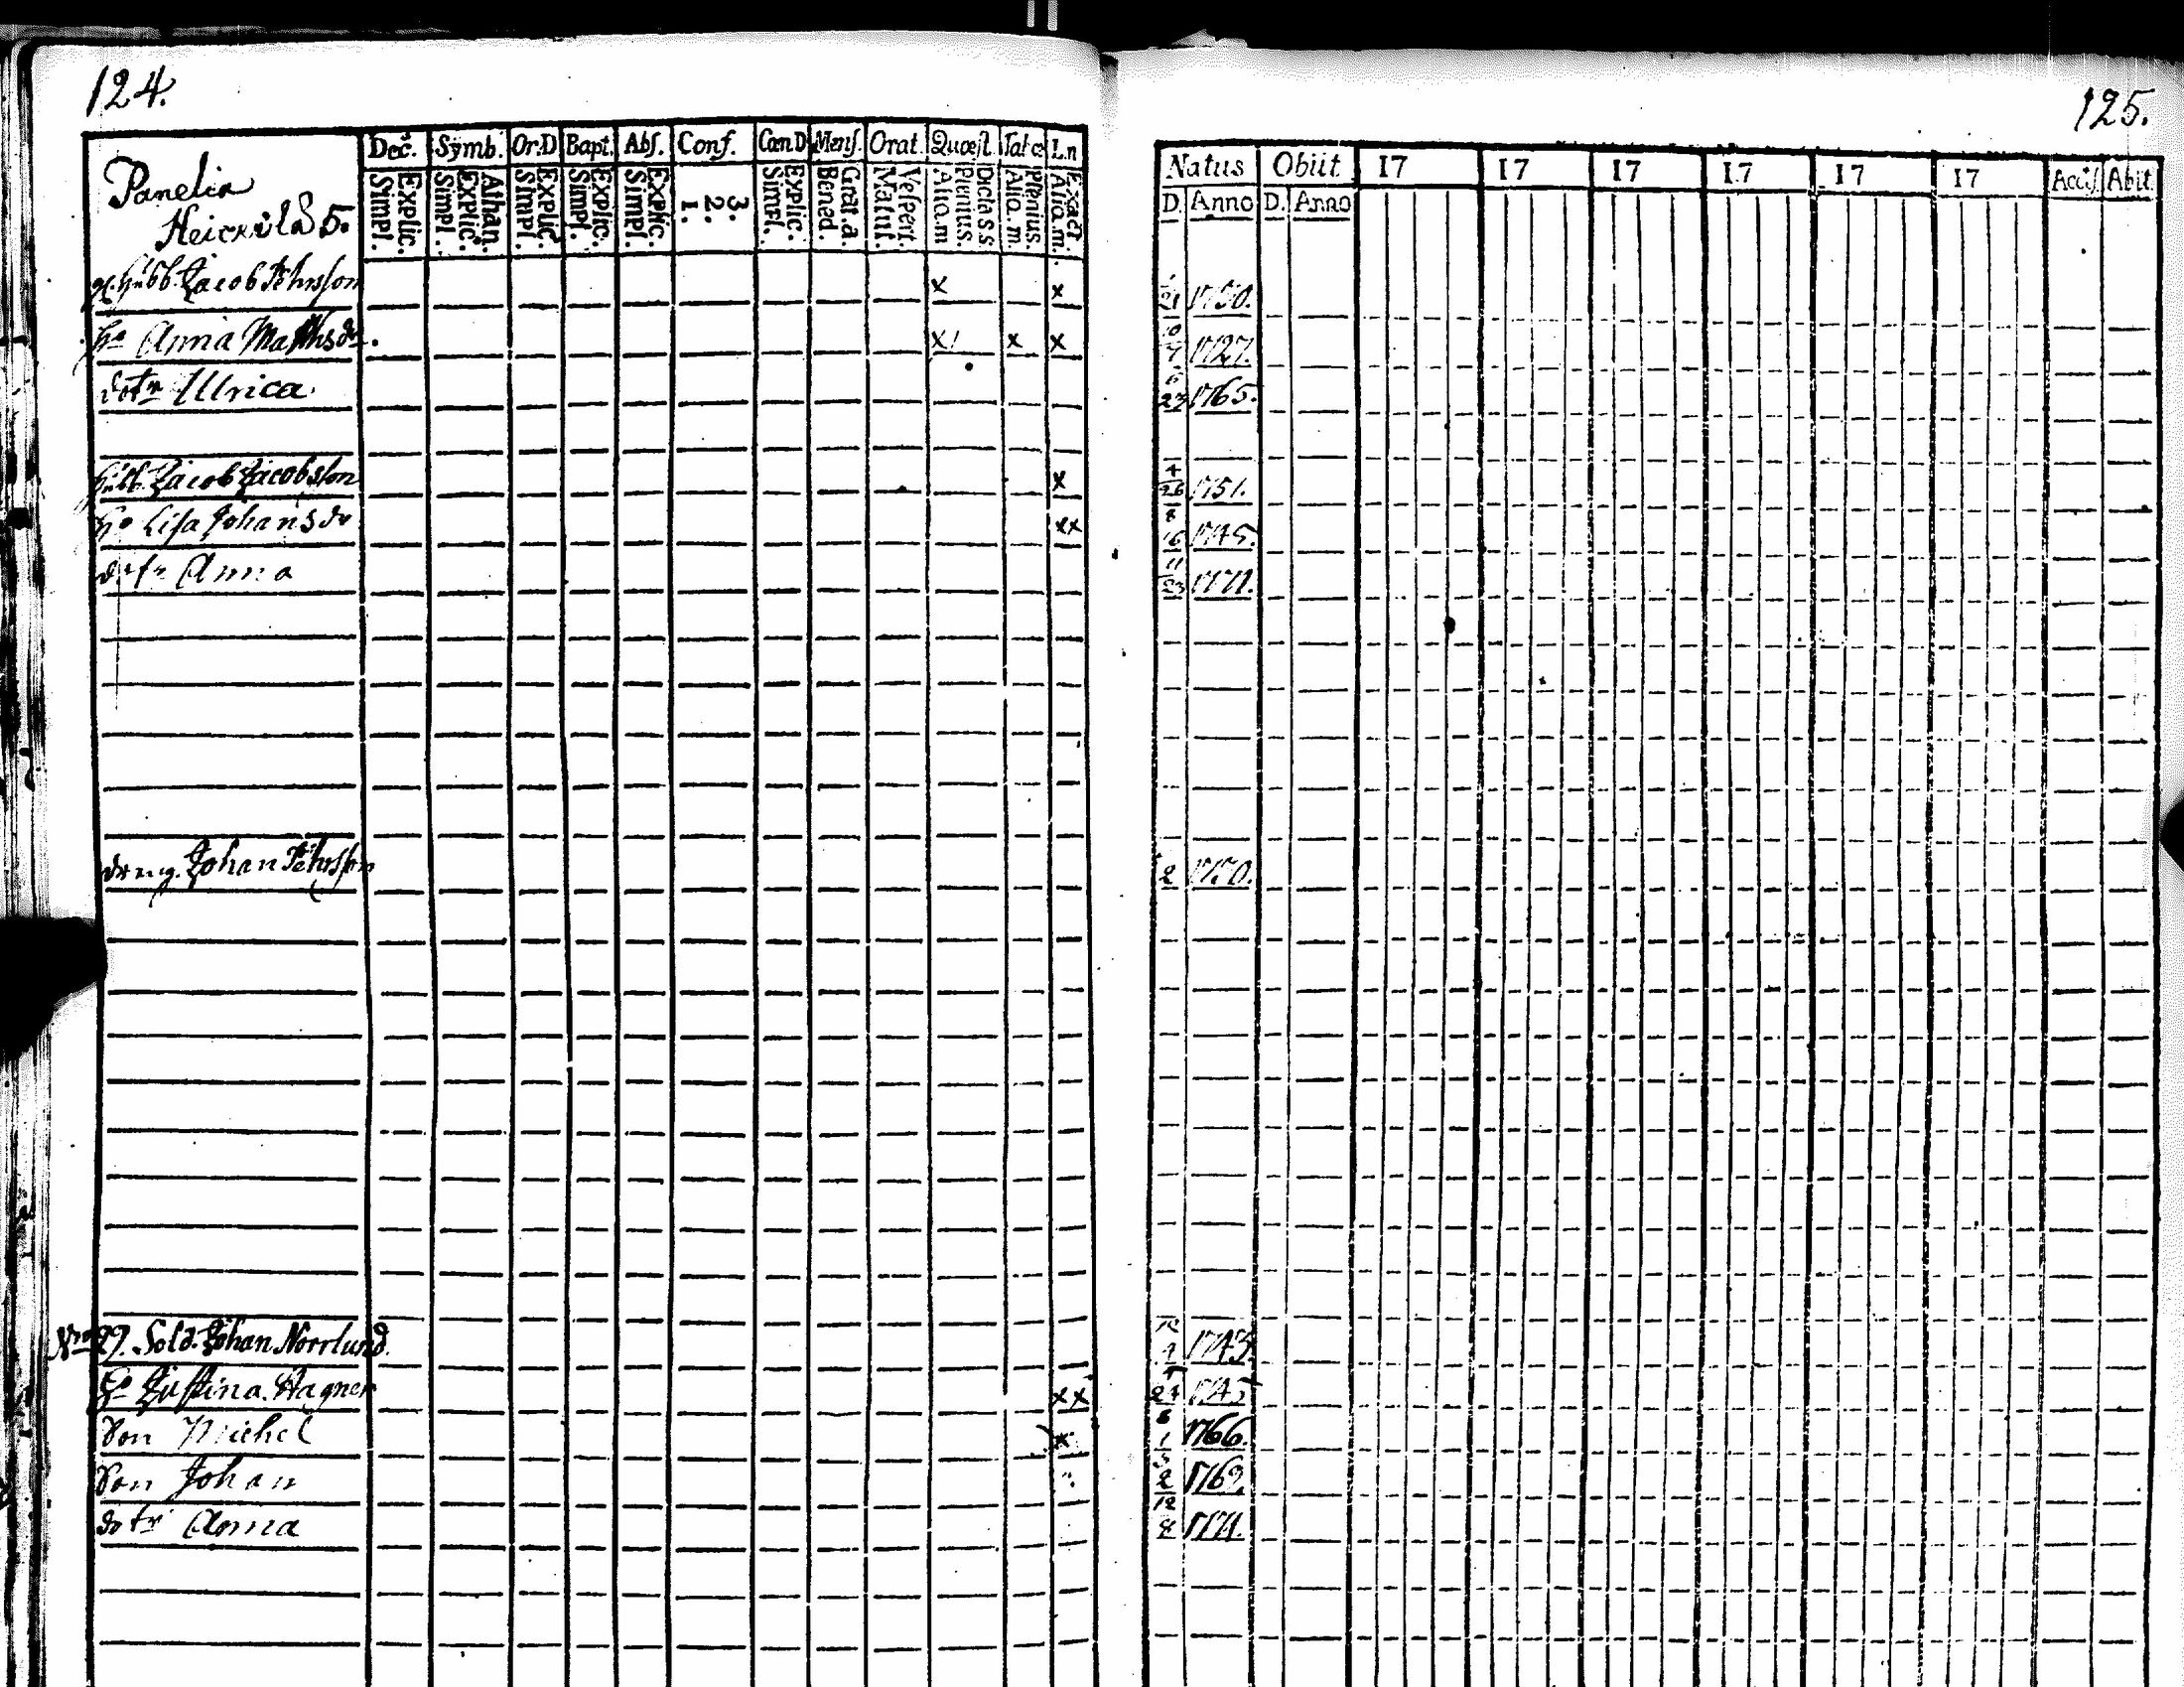 124.
Panelia
Heickilä 5.
Dec. Symb. Or.D Bapt. Abs. Conf. Cœn.D Mens. Orat. Quæst. Tab.œ L.n
Simpl. Explic. Simpl. Explic. Athan. Simpl. Explic. Simpl. Explic. Simpl. Explic. 1. 2. 3. Simpl. Explic. Bened. Grat.a. Matut. Vespert. Aliq.m Plenius. Dicta S.S. Aliq.m. Plenius. Aliq.m. Exact.
gl. husb. Jacob Pehrsson x x
ho Anna Matthsdr. x x x
dotr Ulrica
husb. Jacob Jacobsson x
ho Lisa Johansdr xx
dotr Anna
dreng. Johan Pehrsson
Nro 29. Sold. Johan Norrlund.
ho Justina Wagner x x
Son Michel x
Son Johan
dotr Anna
125.
Natus Obiit 17 17 17 17 17 17 Acces. Abit.
D. Anno D. Anno
21 1730.
10 7 1727.
6 23 1765.
4 26 1751.
8 16 1745.
11 23 1771.
2 1750.
12 1743.
24 1745
6 1 1766.
2 1769.
12 8 1771.